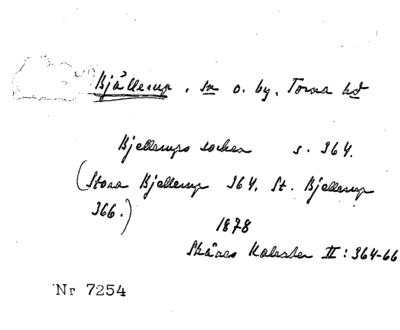 Bjällerup, sn o. by, Torna hd
Bjellerups socken s. 364.
(Stora Bjellerup 364, St. Bjellerup
366.)
1878
Skånes Kalender II: 364-66
Nr 7254